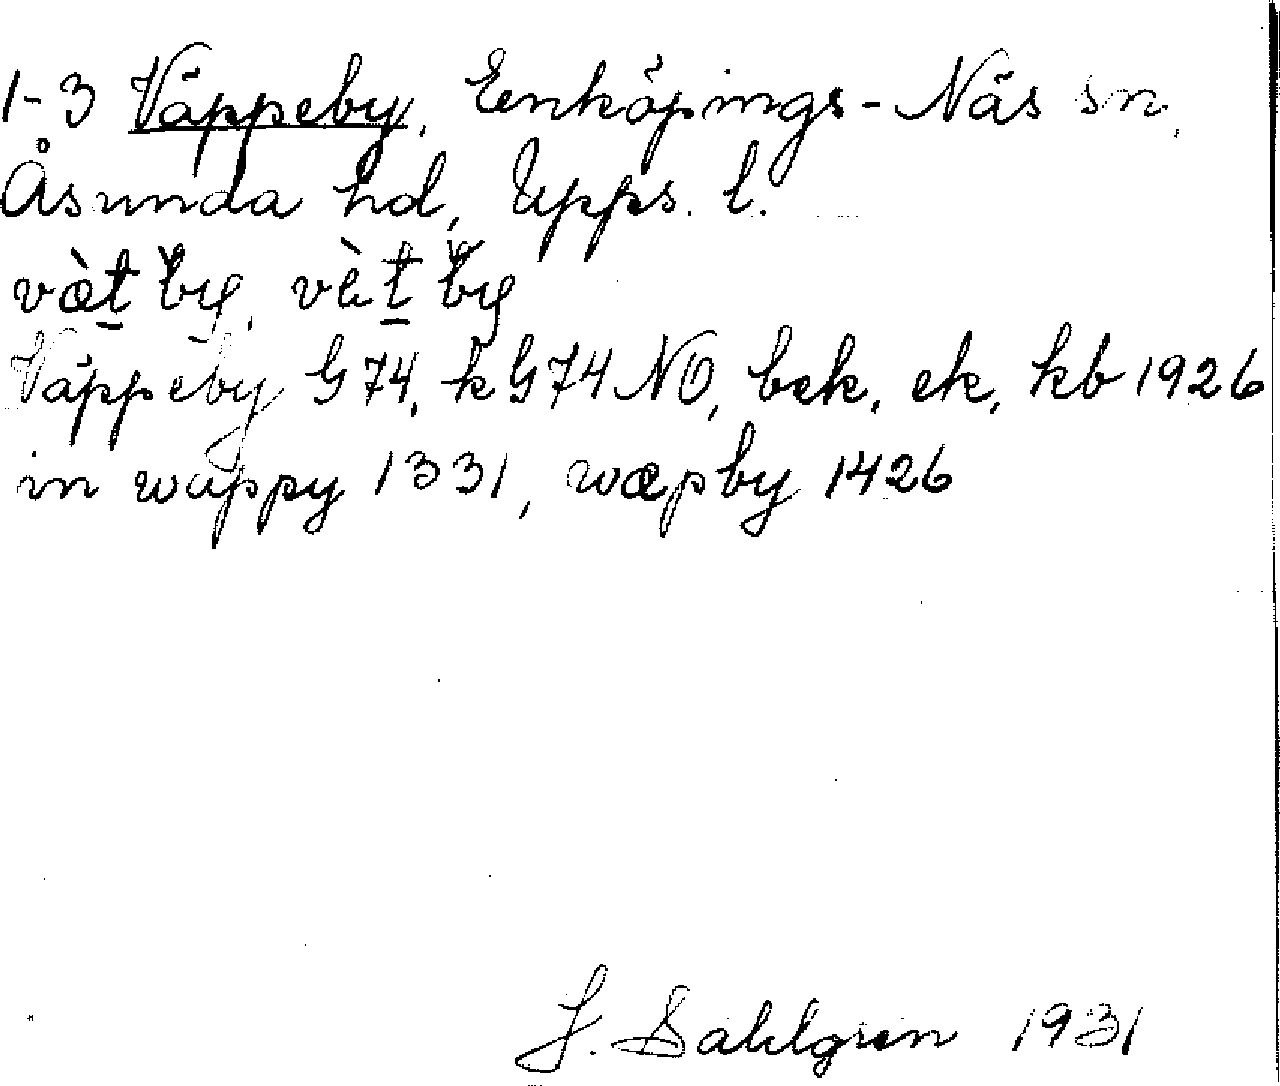 1-3 Väppeby, Enköpings-Näs sn,
Åsunda hd, Upps. l.
Väppeby G74, k G74 NO, bek, ek, kb 1926
in wappy 1331, wæpby 1426
J. Sahlgren 1931